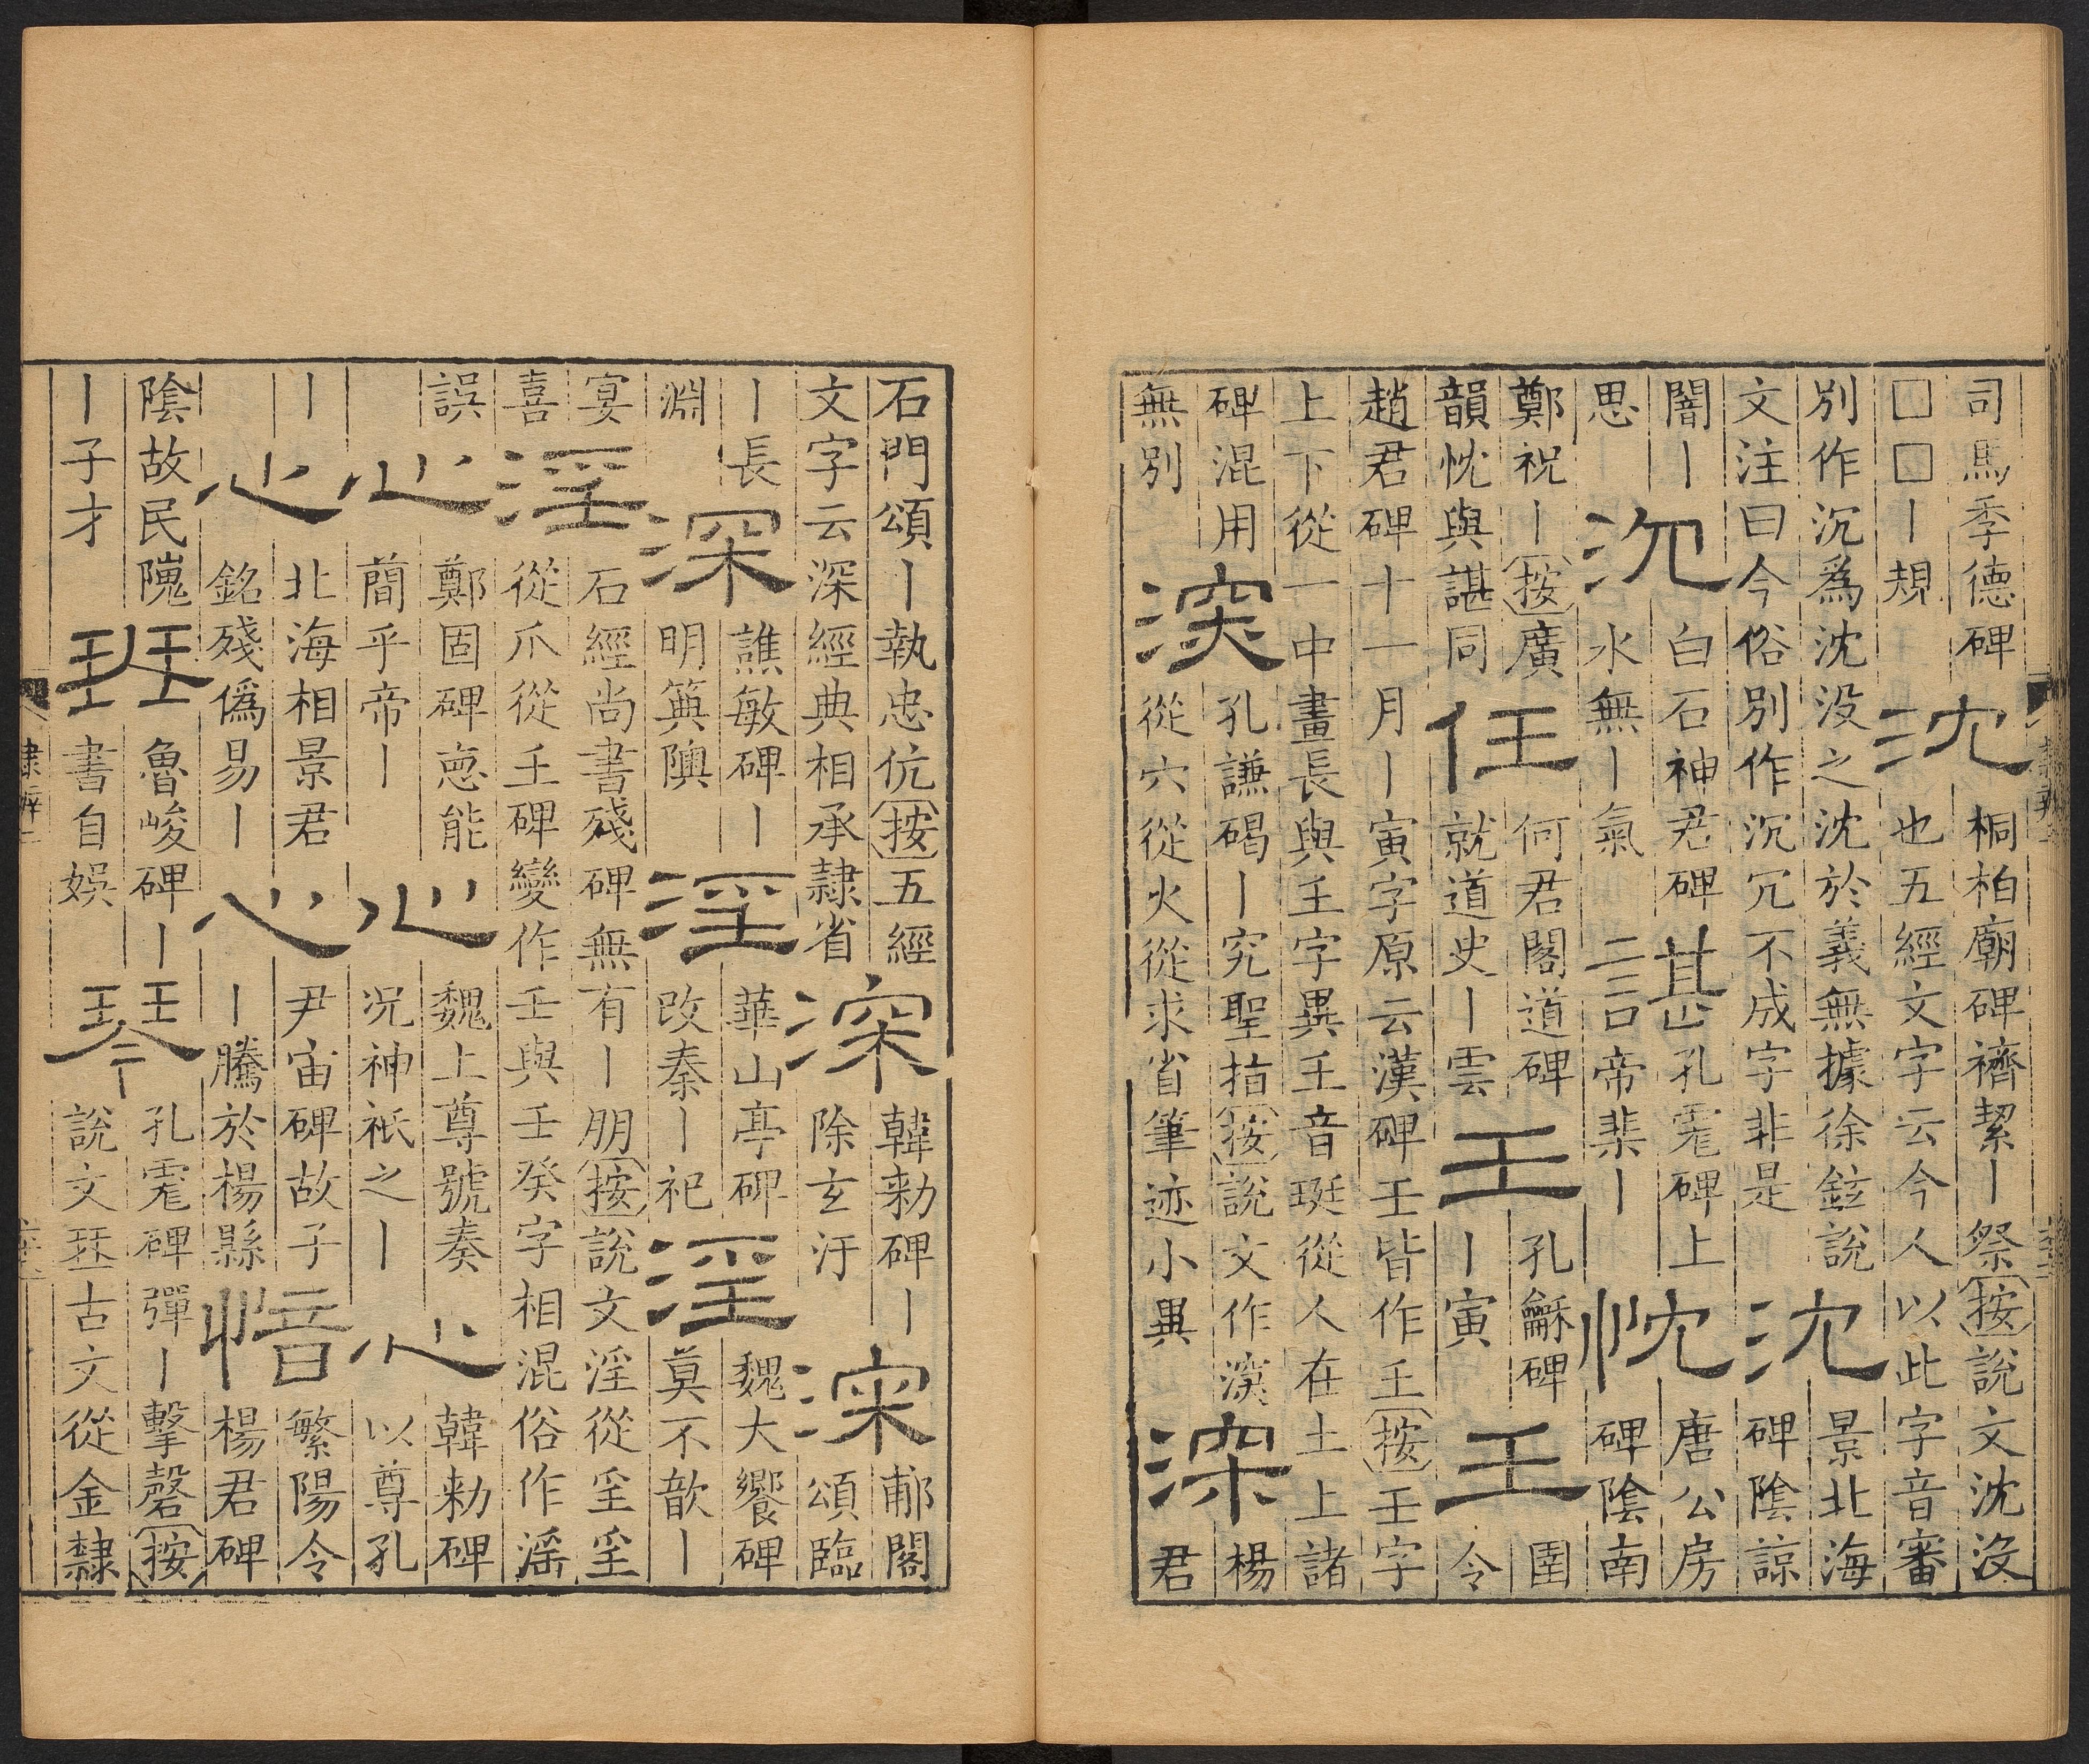 司馬季德碑
□□丨規
沈
桐柏廟碑禱絜丨祭按說文沈没
也五經文字云今人以此字音審
別作沉爲沈没之沈於義無據徐鉉說
文注曰今俗別作沉冗不成字非是
沈
景北海
碑陰諒
闇丨
思
沉
白石神君碑
水無丨氣
諶
孔彪碑上
帝棐丨
忱
唐公房
碑陰南
鄭祝丨按廣
韻忱與諶同
任
何君閣道碑
就道史丨雲
壬
孔龢碑
丨寅
壬
圉
令
趙君碑十一月丨寅字原云漢碑壬皆作𡈼按壬字
上下從一中畫長與𡈼字異𡈼音珽從人在土上諸
碑混用
無別
深
孔謙碣丨究聖指按說文作㴱
從穴從火從求省筆迹小異
深
楊
君
石門頌丨執忠伉按五經
文字云深經典相承隸省
深
韓勑碑丨
除玄汙
深
郙閣
頌臨
丨長
淵
深
譙敏碑丨
明箕隩
淫
華山亭碑
改秦丨祀
淫
魏大饗碑
莫不歆丨
宴
喜
淫
石經尚書殘碑無有丨朋按說文淫從㸒㸒
從爪從𡈼碑變作壬與壬癸字相混俗作滛
誤
心
鄭固碑恵能
簡乎帝丨
心
魏上尊號奏
况神祇之丨
心
韓勑碑
以尊孔
丨
心
北海相景君
銘殘僞易丨
心
尹宙碑故子
丨騰於楊縣
愔
繁陽令
楊君碑
陰故民隗
丨子才
珡
魯峻碑丨
書自娛
琴
孔彪碑彈丨擊磬按
說文珡古文從金隸